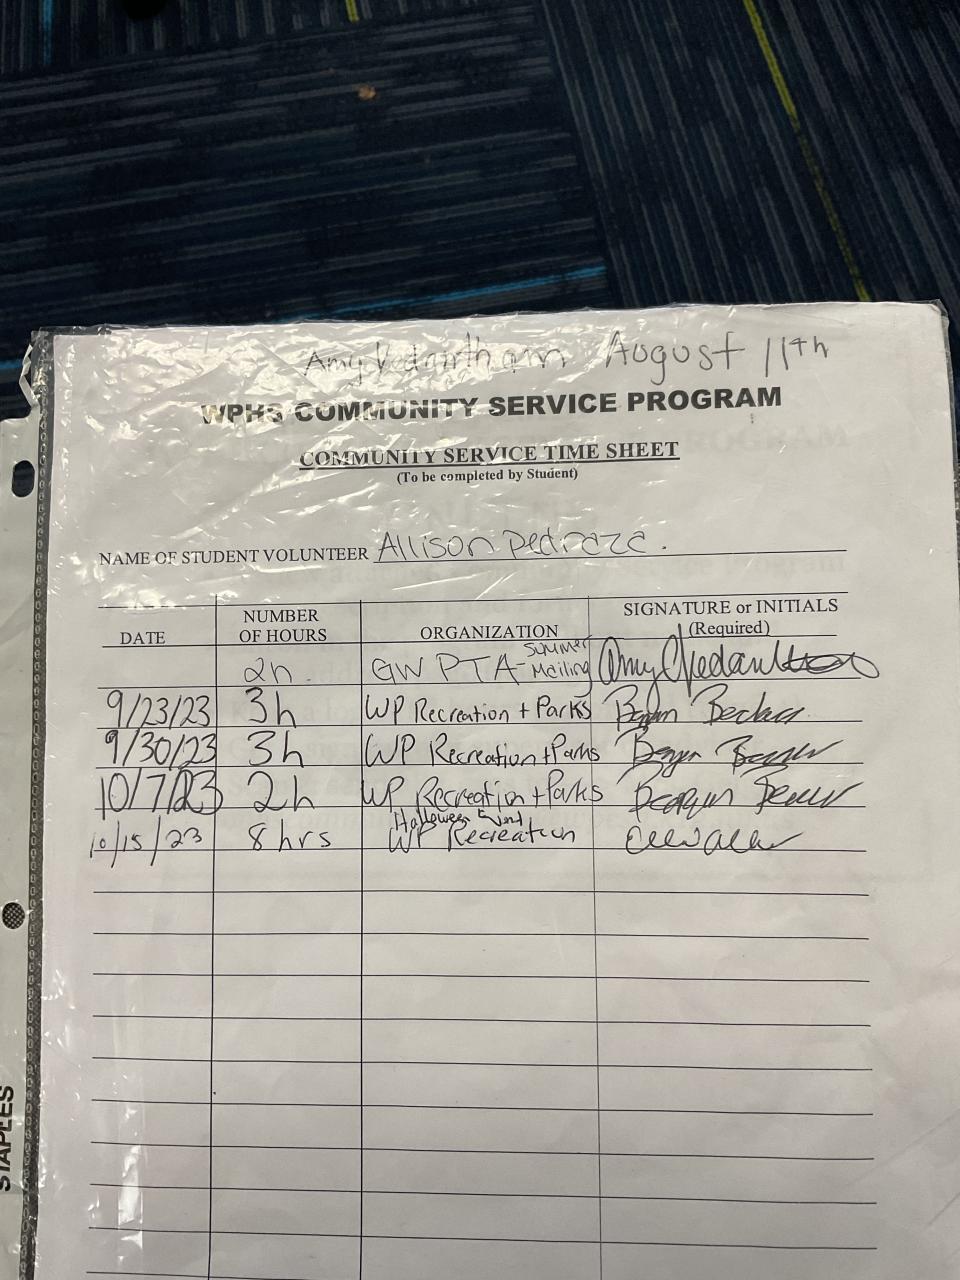 Amy Vedantham August 11th
WPHS COMMUNITY SERVICE PROGRAM
COMMUNITY SERVICE TIME SHEET
(To be completed by Student)
NAME OF STUDENT VOLUNTEER Allison Pedraza.
DATE NUMBER OF HOURS ORGANIZATION SIGNATURE or INITIALS (Required)
2h. GW PTA - Summer Mailing Amy Vedantham
9/23/23 3h WP Recreation + Parks
9/30/23 3h WP Recreation + Parks
10/7/23 2h WP Recreation + Parks
10/15/23 8 hrs Halloween Event WP Recreation
STAPLES